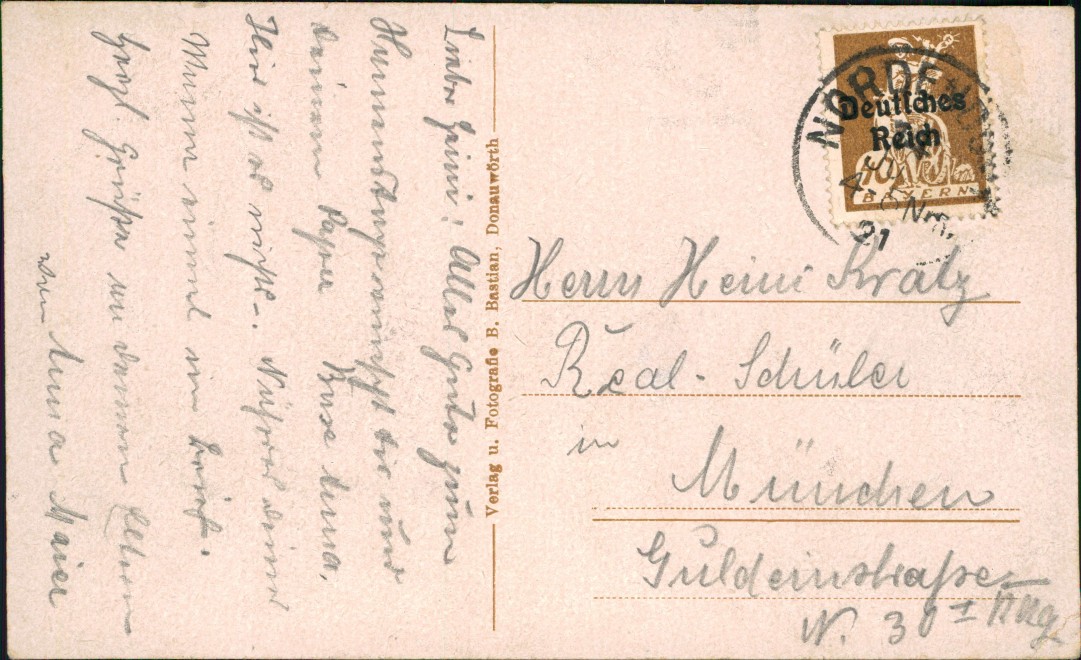 Liebe Heini! Alles Gute zum
Namenstag wünscht dir und
deinem Papa Base Anna.
Hier ist es
Mama einmal ein Brief.
Herzl. Grüße an deinen Eltern
von Anna Maier
Verlag u. Fotografie B. Bastian, Donauwörth
NORDEN
Deutsches
Reich
40
BAYERN
21
Herrn Heini Kratz
Real-Schüler
in
München
Guldeinstraße
N. 30 I